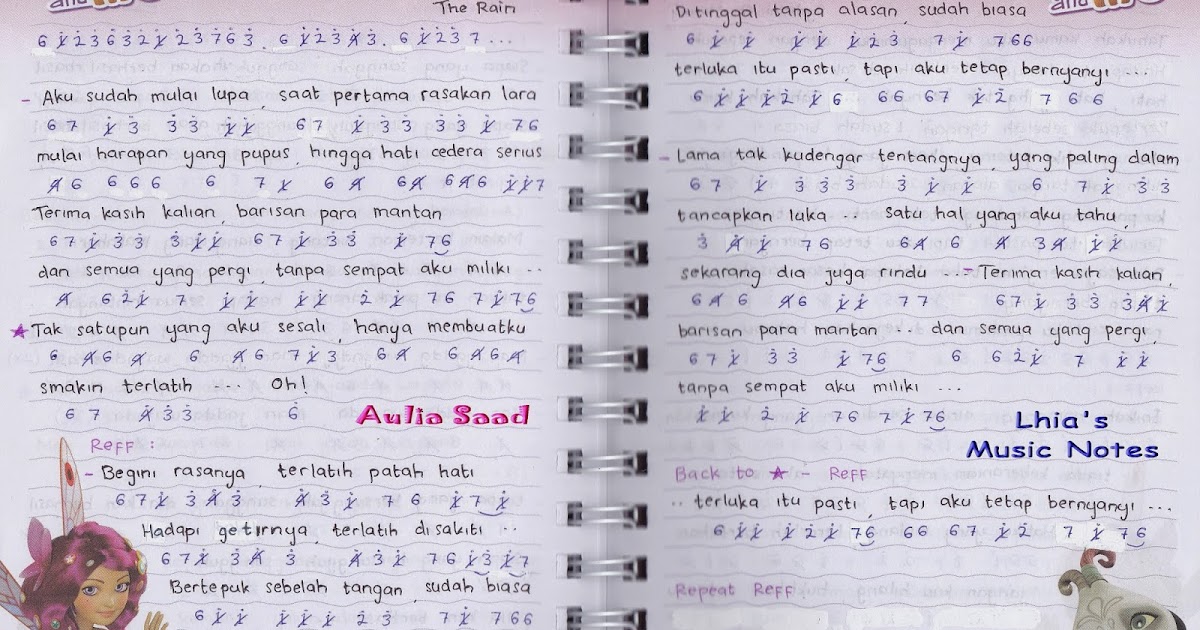 The Rain
6 1̸ 2 3 6 3 2 1̸ 2 3 7 6 3 . 6 1̸ 2 3 4̸ 3 . 6 1̸ 2 3 7 ...
- Aku sudah mulai lupa, saat pertama rasakan lara
6 7 1̸ 3 3 3 1̸ 1̸ 6 7 1̸ 3 3 3 3 1̸ 7 6
mulai harapan yang pupus, hingga hati cedera serius
4̸ 6 6 6 6 6 7 1̸ 6 4̸ 6 4̸ 6 4̸ 6 1̸ 1̸ 7
Terima kasih kalian, barisan para mantan
6 7 1̸ 3 3 3 1̸ 1̸ 6 7 1̸ 3 3 1̸ 7 6
dan semua yang pergi tanpa sempat aku miliki ..
4̸ 6 2 1̸ 7 1̸ 1̸ 1̸ 1̸ 2 1̸ 7 6 7 1̸ 7 6
★ Tak satupun yang aku sesali, hanya membuatku
6 4̸ 6 4̸ 6 4̸ 6 7 1̸ 3 6 4̸ 6 4̸ 6 4̸
smakin terlatih .... Oh!
6 7 4̸ 3 3 6
Aulia Saad
Reff :
- Begini rasanya, terlatih patah hati
6 7 1̸ 3 4̸ 3 4̸ 3 1̸ 7 6 1̸ 7 1̸
Hadapi getirnya, terlatih disakiti ..
6 7 1̸ 3 4̸ 3 4̸ 3 1̸ 7 6 1̸ 3 1̸ 7
Bertepuk sebelah tangan, sudah biasa
6 1̸ 1̸ 1̸ 1̸ 1̸ 2 3 7 1̸ 7 6 6
Ditinggal tanpa alasan, sudah biasa
6 1̸ 1̸ 1̸ 1̸ 1̸ 2 3 7 1̸ 7 6 6
terluka itu pasti, tapi aku tetap bernyanyi ....
6 1̸ 1̸ 1̸ 2 1̸ 6 6 6 6 7 1̸ 2 7 6 6
- Lama tak kudengar tentangnya, yang paling dalam
6 7 1̸ 3 3 3 3 1̸ 1̸ 6 7 1̸ 3 3
tancapkan luka ... Satu hal yang aku tahu,
3 4̸ 1̸ 7 6 6 4̸ 6 4̸ 3 4̸ 1̸ 1̸
sekarang dia juga rindu ... - Terima kasih kalian,
6 4̸ 6 4̸ 6 1̸ 1̸ 7 7 6 7 1̸ 3 3 3 4̸ 1̸
barisan para mantan ... dan semua yang pergi,
6 7 1̸ 3 3 1̸ 7 6 6 6 2 1̸ 7 1̸ 1̸
tanpa sempat aku miliki ...
1̸ 1̸ 2 1̸ 7 6 7 1̸ 7 6
Lhia's
Music Notes
Back to ★ - Reff
.. terluka itu pasti, tapi aku tetap bernyanyi ...
6 1̸ 1̸ 1̸ 2 1̸ 7 6 6 6 6 7 1̸ 2 7 1̸ 7 6
Repeat Reff